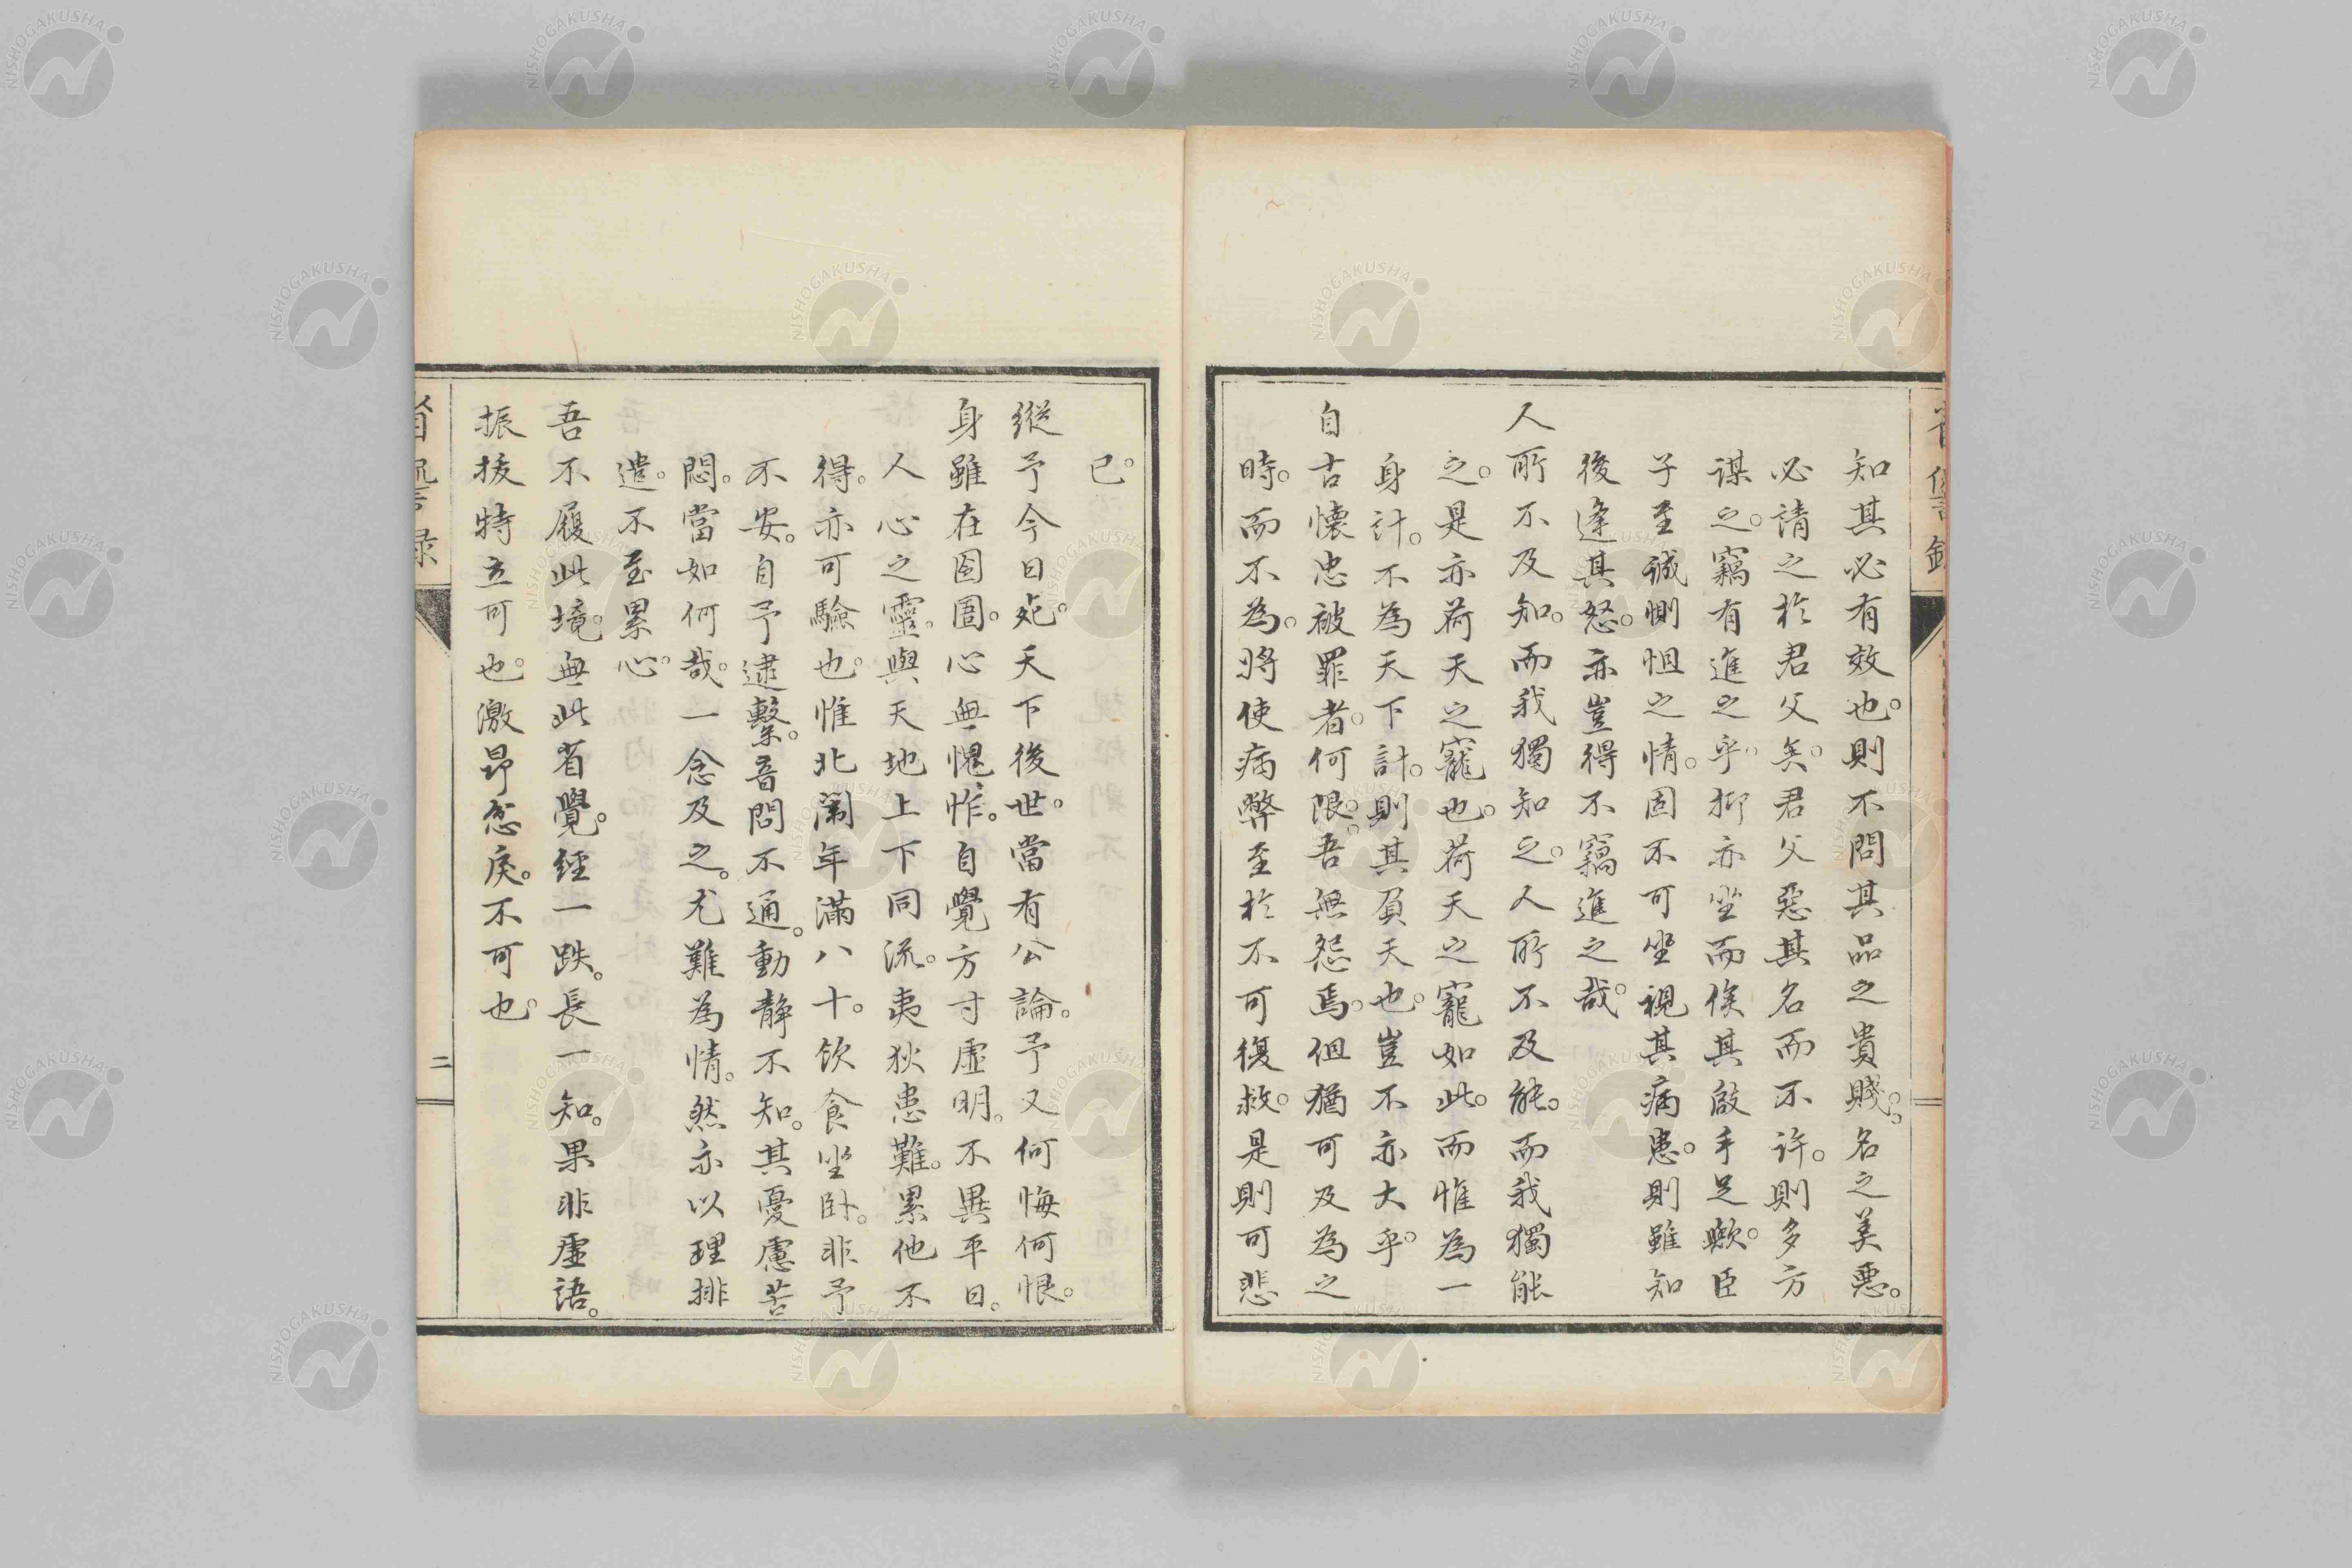 知其必有效也。則不問其品之貴賤。名之美惡。
必請之於君父矣。君父惡其名而不許。則多方
謀之。竊有進之乎。抑亦坐而俟其啟手足歟。臣
子至誠惻怛之情。固不可坐視其病患。則雖知
後逢其怒。亦豈得不竊進之哉。
人所不及知。而我獨知之。人所不及能。而我獨能
之。是亦荷天之寵也。荷天之寵如此。而惟為一
身計。不為天下計。則其負天也。豈不亦大乎。
自古懷忠被罪者。何限。吾無怨焉。但猶可及為之
時。而不為。將使病弊至於不可復救。是則可悲
已。
縱予今日死。天下後世。當有公論。予又何悔何恨。
身雖在囹圄。心無愧怍。自覺方寸虛明。不異平日。
人心之靈。與天地上下同流。夷狄患難。累他不
得。亦可驗也。惟北闈年滿八十。飲食坐臥。非予
不安。自予逮繫。音問不通。動靜不知。其憂慮苦
悶。當如何哉。一念及之。尤難為情。然亦以理排
遣。不至累心。
吾不履此境。無此省覺。經一跌。長一知。果非虛語。
振拔特立可也。激昂忿戾。不可也。
省諐錄
二
NISHOGAKUSHA